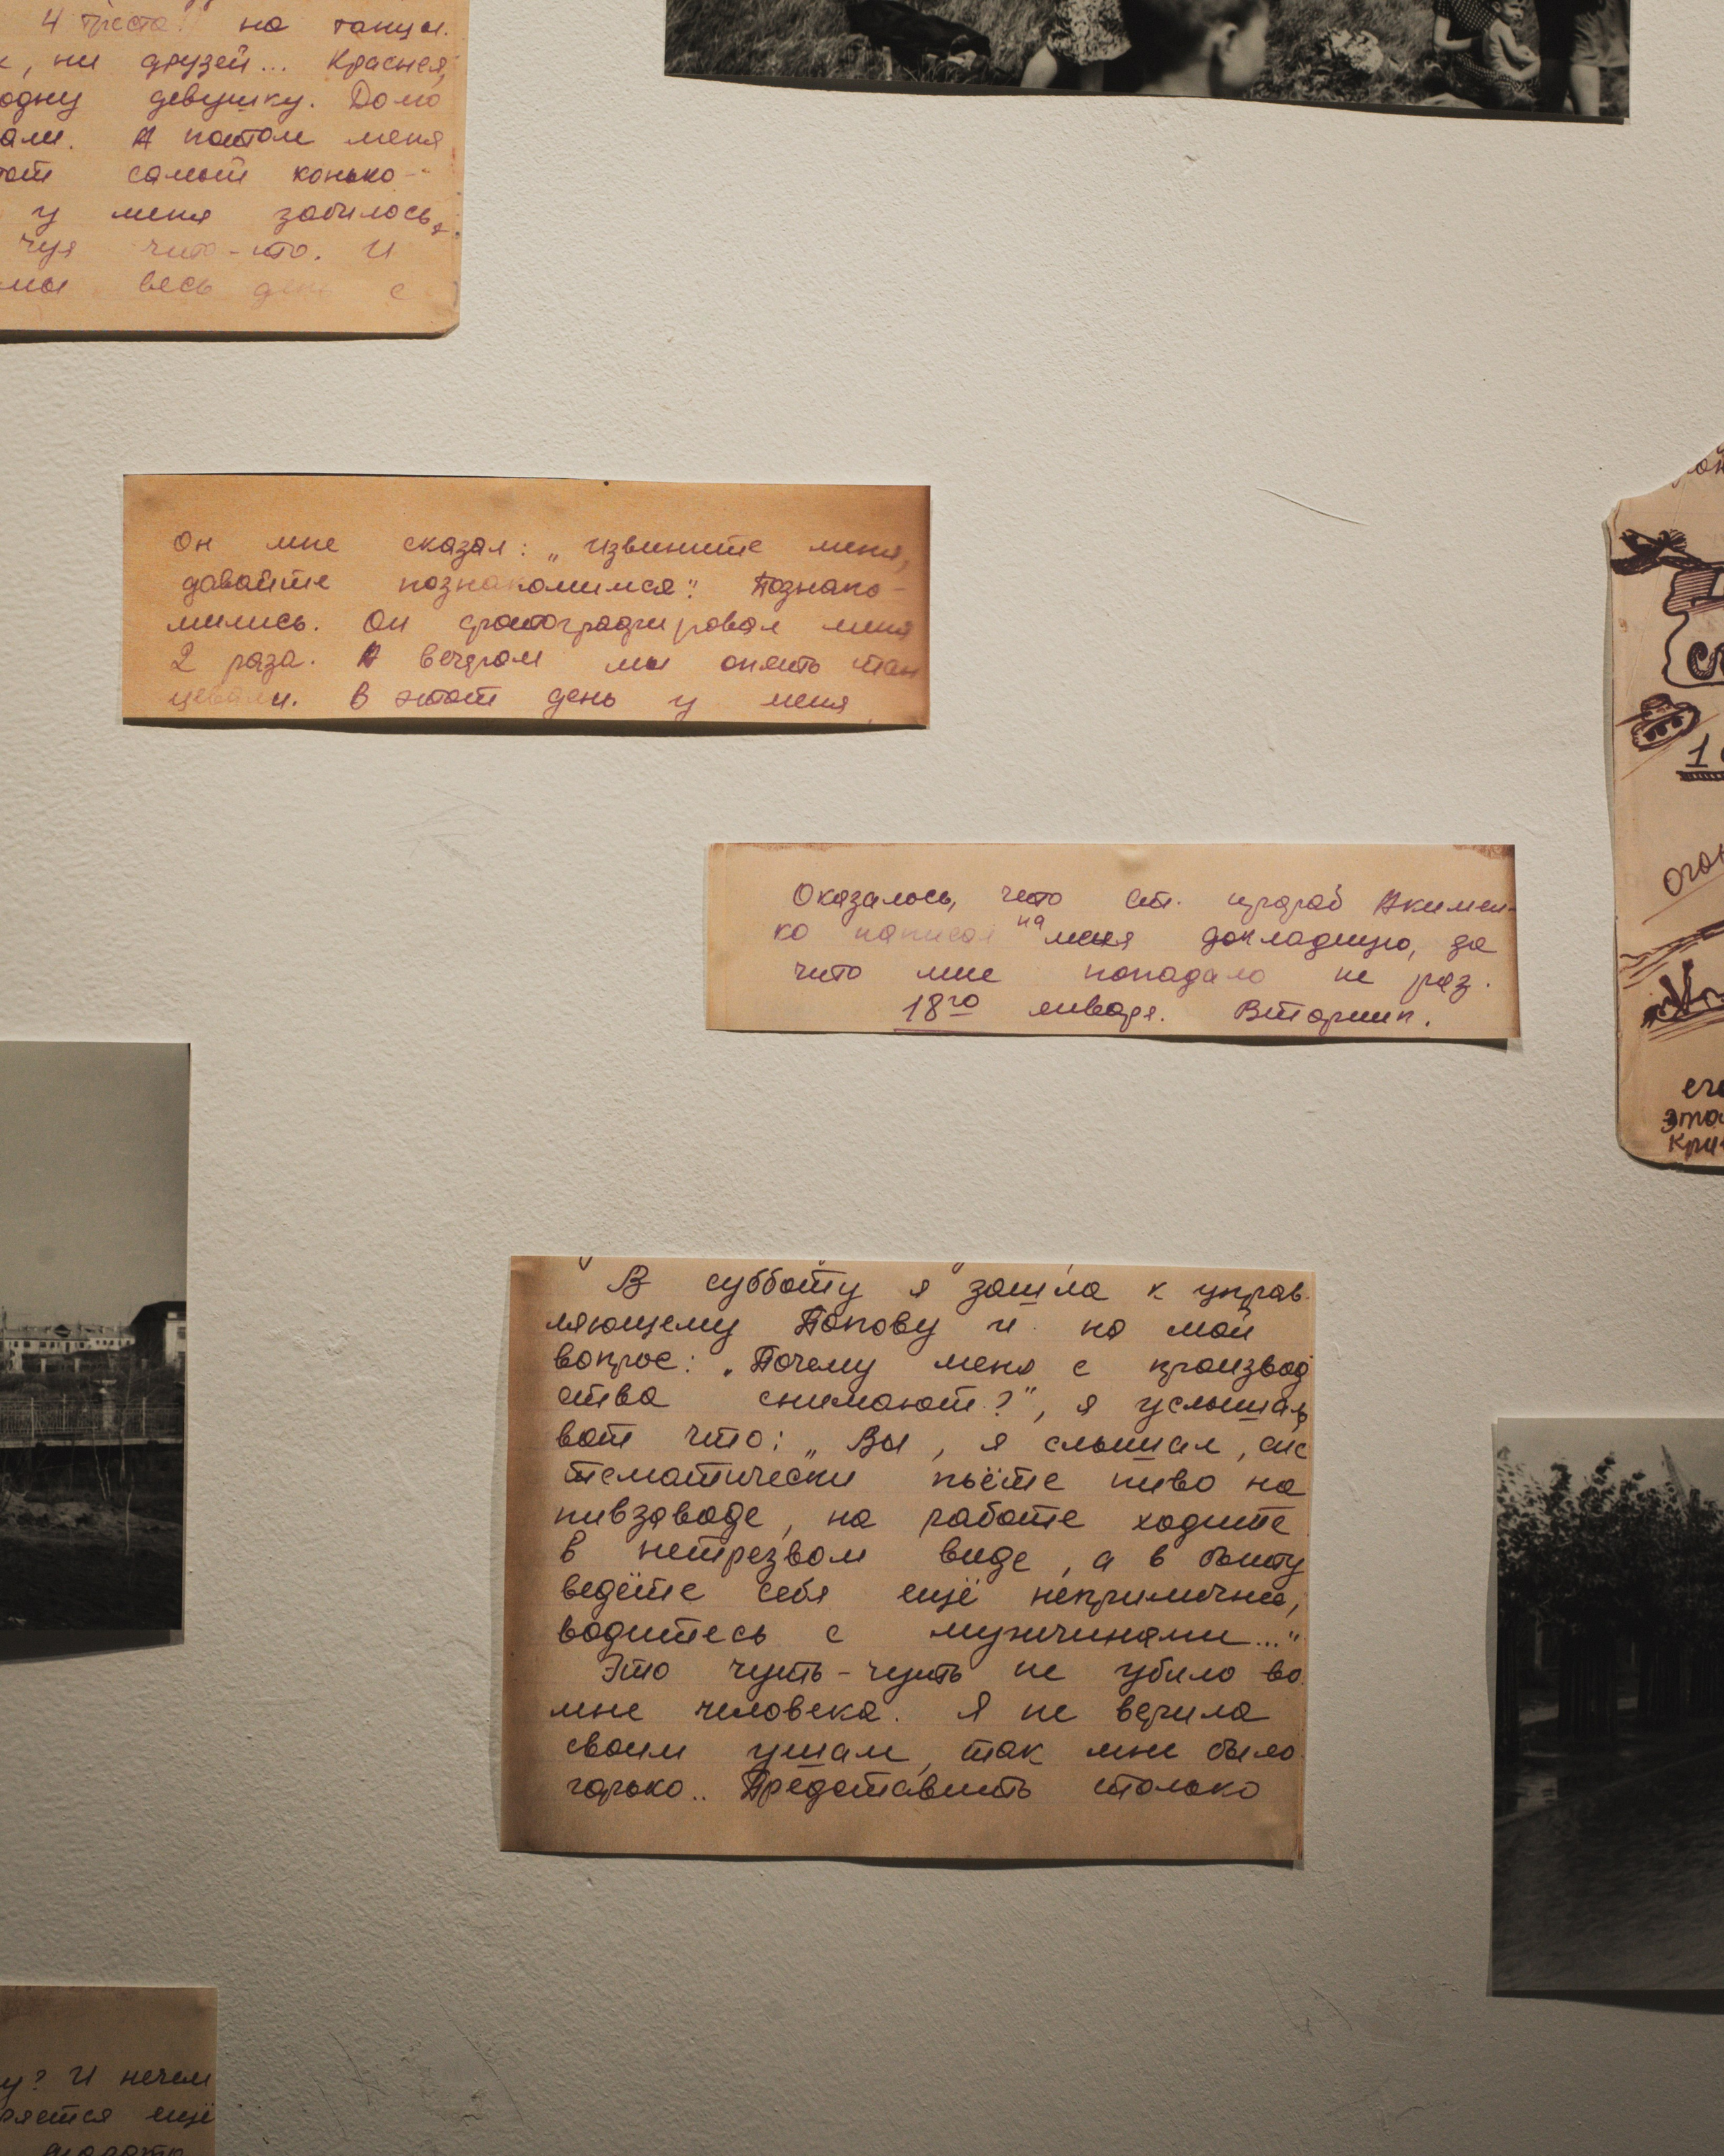 4 треста" на танцы.
, ни друзей... Краснея,
одну девушку. Домо
али. А потом меня
тот самый конько-
у меня забилось,
чуя что-то. И
мы весь день с
Он мне сказал: „Извините меня,
давайте познакомимся". Познако-
мились. Он сфотографировал меня
2 раза. А вечером мы опять тан
цевали. В этот день у меня
Оказалось, что ст. прораб Акимен-
ко написал на меня докладную, за
что мне попадало не раз.
18го января. Вторник.
В субботу я зашла к управ-
ляющему Попову и на мой
вопрос: „Почему меня с производ
ства снимают?", я услышала
вот что: „Вы, я слышал, сис
тематически пьёте пиво на
пивзаводе, на работе ходите
в нетрезвом виде, а в быту
ведёте себя ещё неприличнее,
водитесь с мужчинами..."
Это чуть-чуть не убило во
мне человека. Я не верила
своим ушам, так мне было
горько.. Представить столько
1
его
это
кри
у? И нечем
ряется ещё